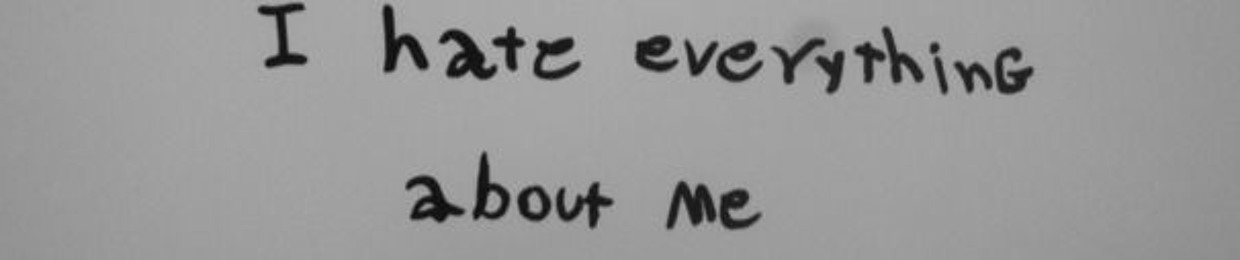 I hate everythinG
about me